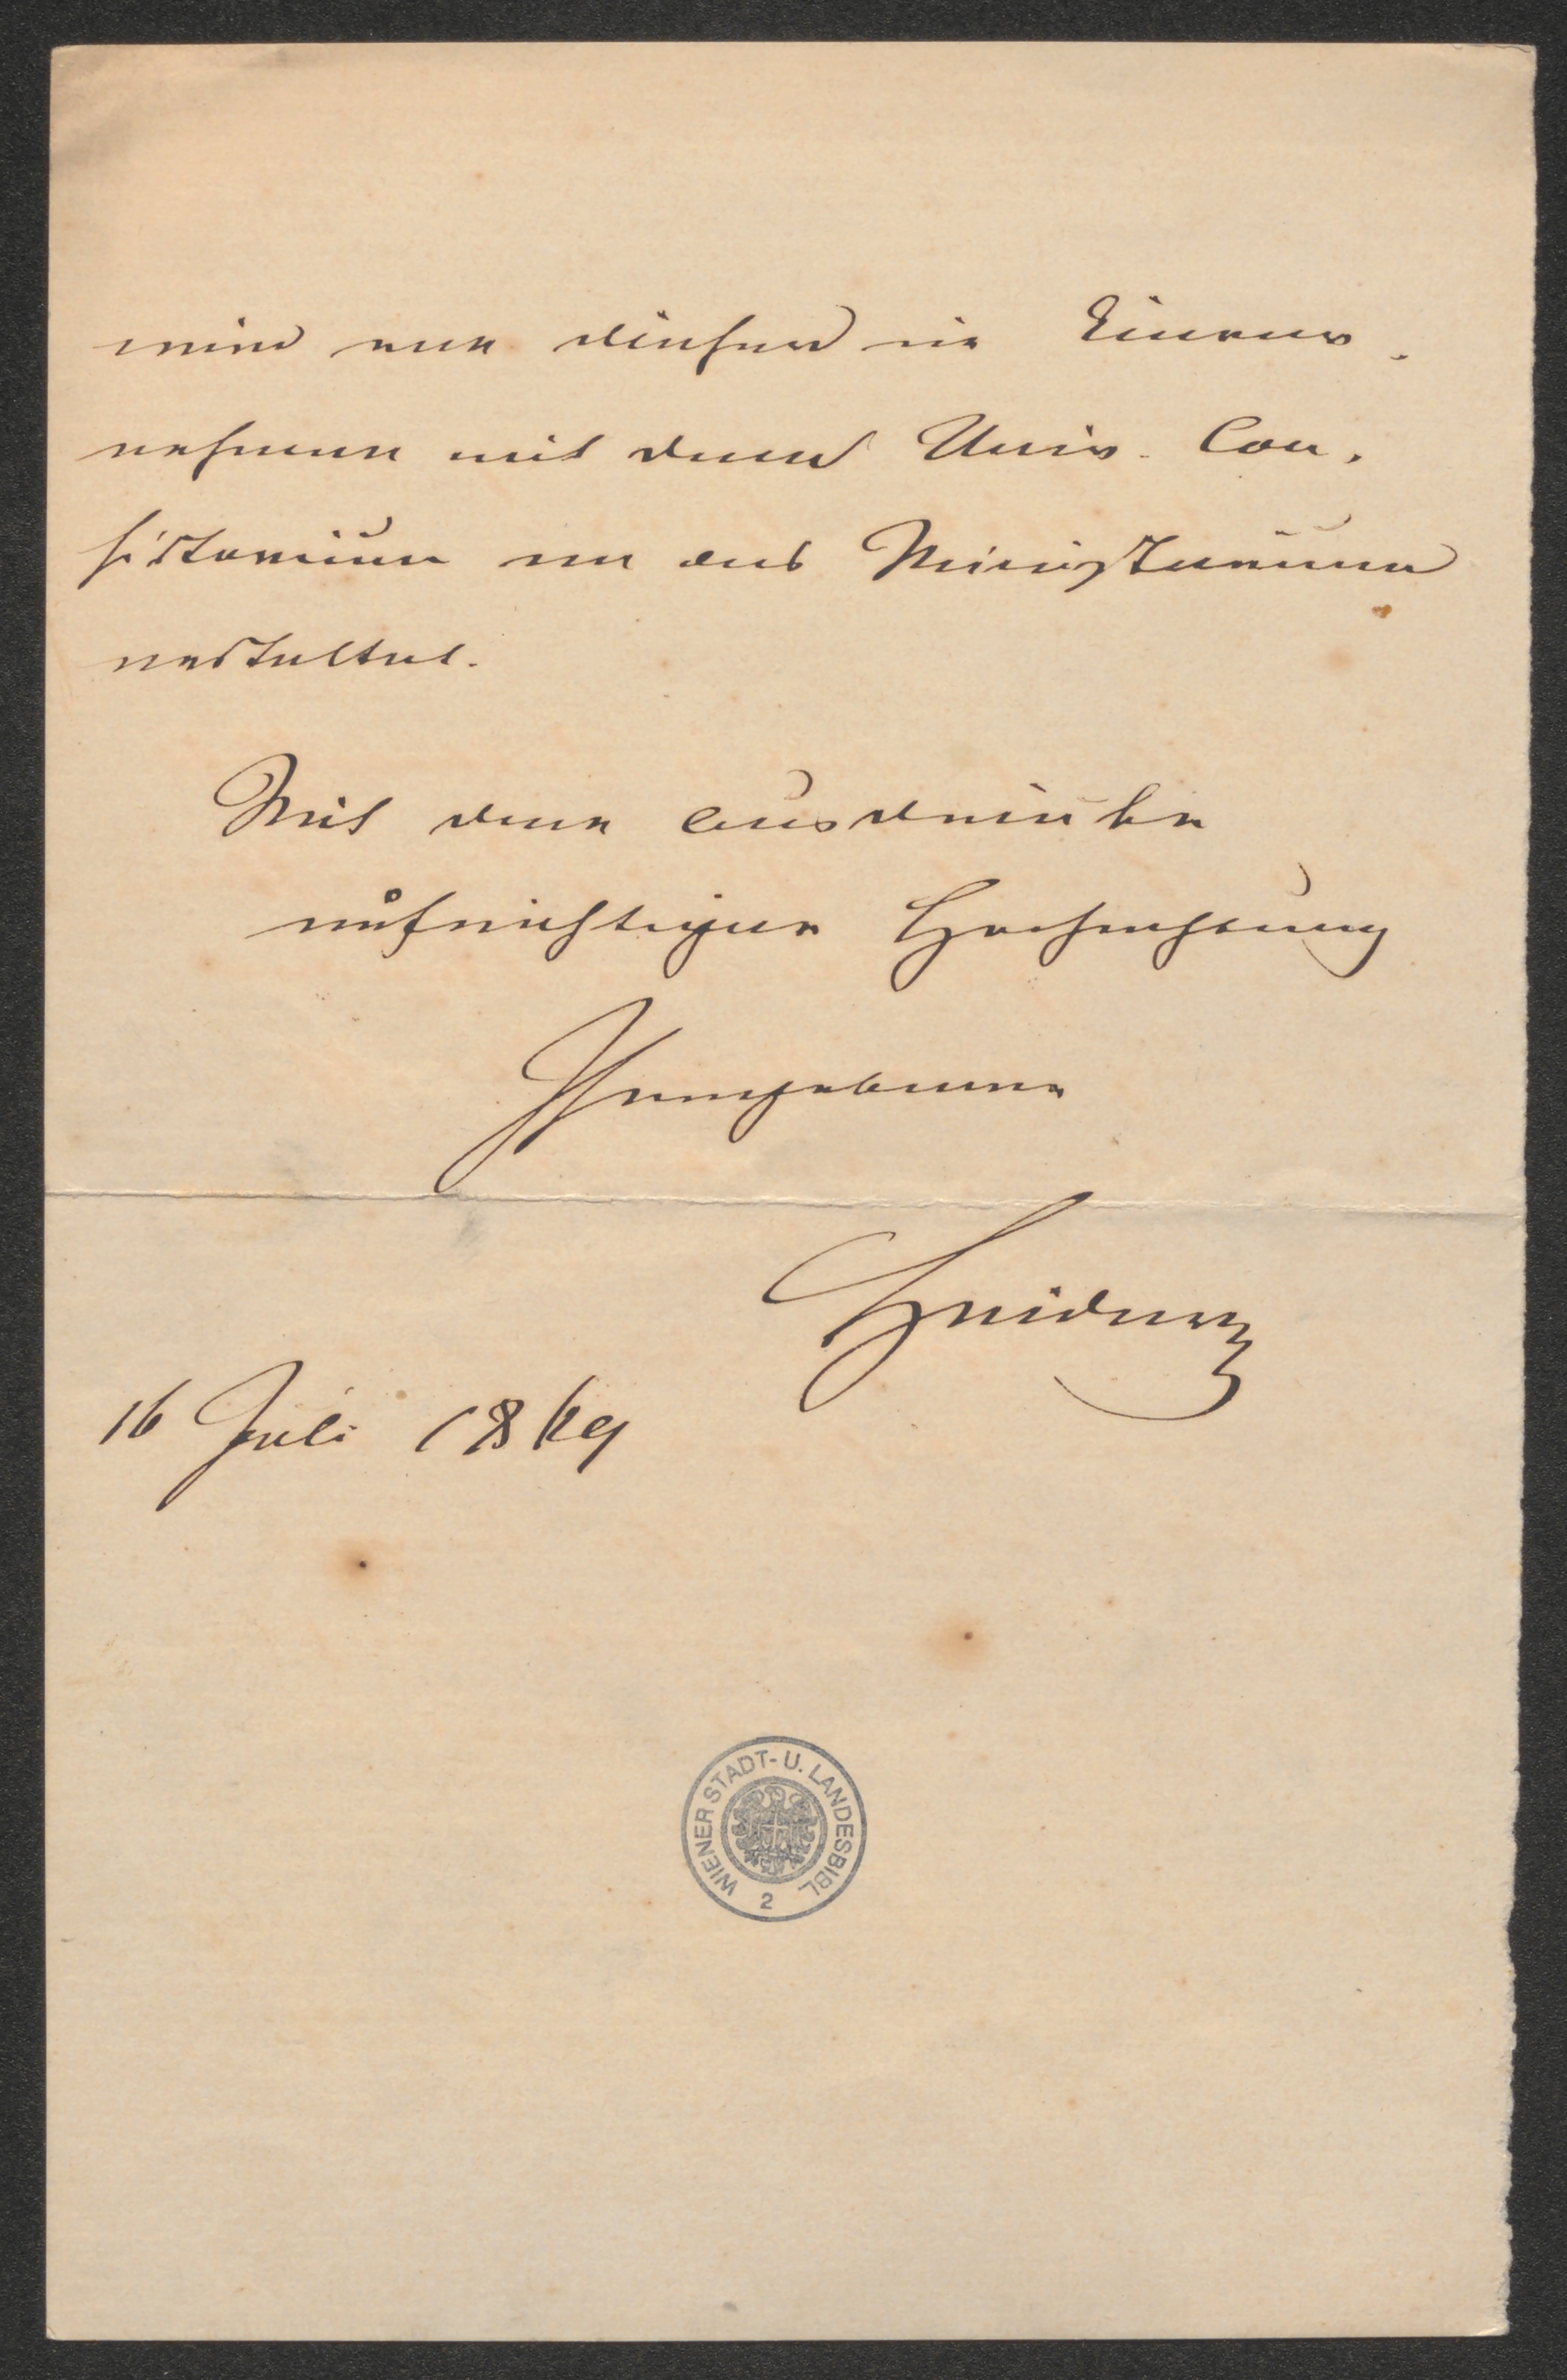 wird von dieser im Einver-
nehmen mit dem Univ. Con-
sistorium an das Ministerium
erstattet.
Mit dem Ausdrucke
aufrichtiger Hochachtung
Ihr ergebener
Haidner
16 Juli 1869
WIENER STADT- U. LANDESBIBL.
2